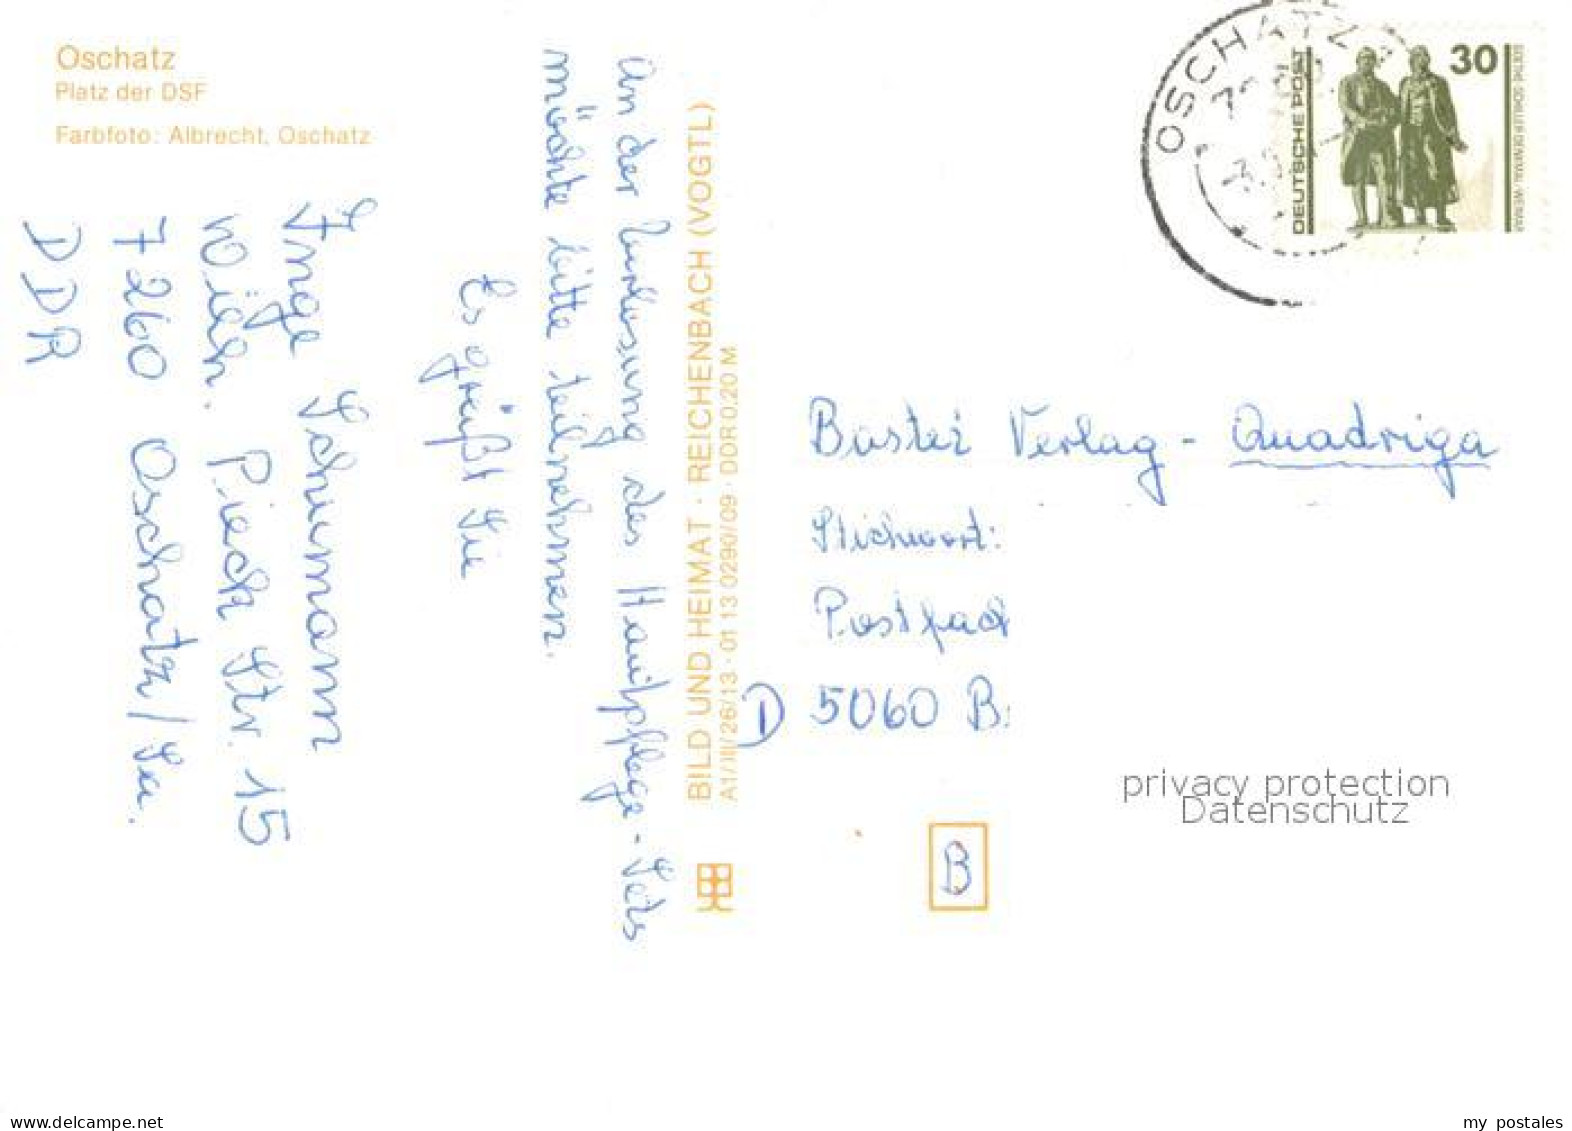 Oschatz
Platz der DSF
Farbfoto: Albrecht, Oschatz
An der Verlosung des Hautpflege-Sets
möchte bitte teilnehmen.
Es grüßt Sie
Inge Schumann
Wilh. Pieck Str. 15
7260 Oschatz/Sa.
DDR
BILD UND HEIMAT · REICHENBACH (VOGTL)
A1/III/26/13 · 01 13 0290/09 · DDR 0,20 M
OSCHATZ
DEUTSCHE POST
30
GOETHE-SCHILLER-DENKMAL · WEIMAR
Bastei Verlag - Quadriga
Stichwort:
Postfach
D 5060 B.
privacy protection
Datenschutz
B
www.delcampe.net
my_postales